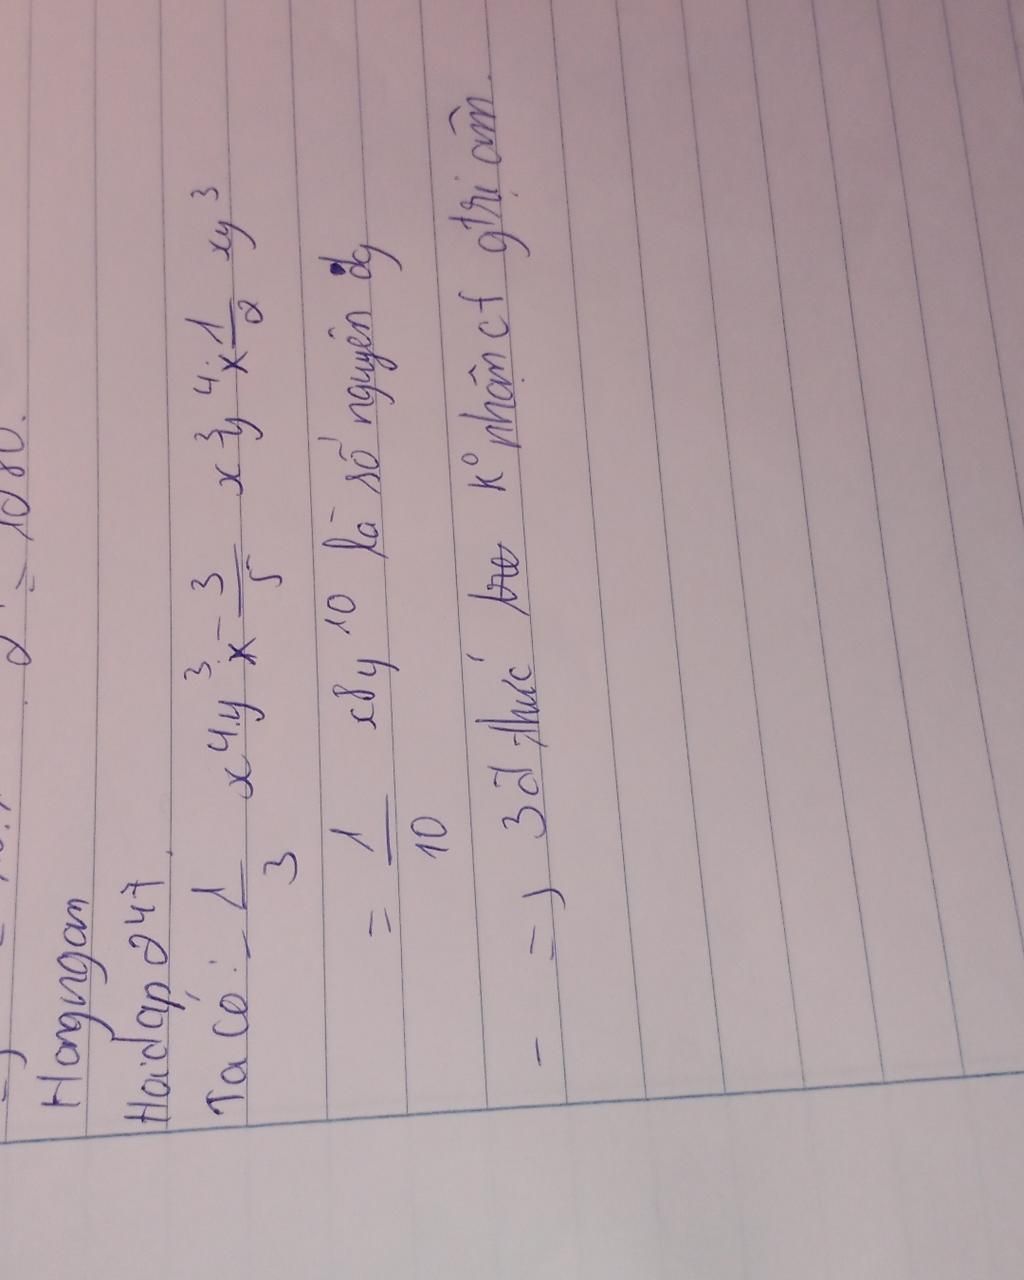 2 = 1080.
Hongngam
Hoidap247
Ta có: -1/3 x⁴y³ × -3/5 x³y⁴ × 1/2 xy³
= 1/10 x8y¹⁰ là số nguyên dg
- =) 3 đ thức k° nhận cf gtrị âm.